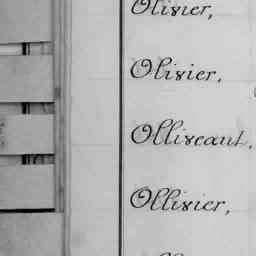 Olivier,
Olivier,
Olliveaut,
Ollivier,